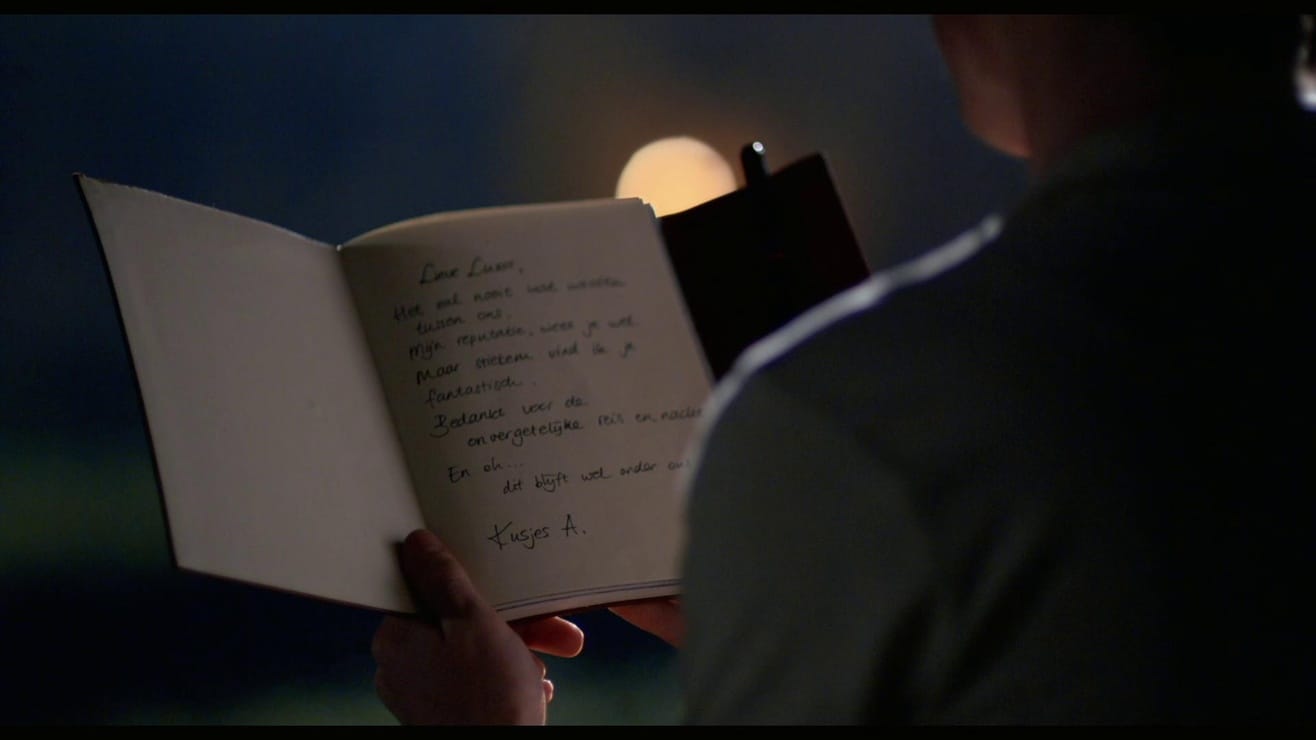 Lieve
Het zal nooit wat worden
tussen ons.
Mijn reputatie, weet je wel
Maar stiekem vind ik je
fantastisch.
Bedankt voor de
onvergetelijke reis en
En oh...
dit blijft wel onder ons
Kusjes A.